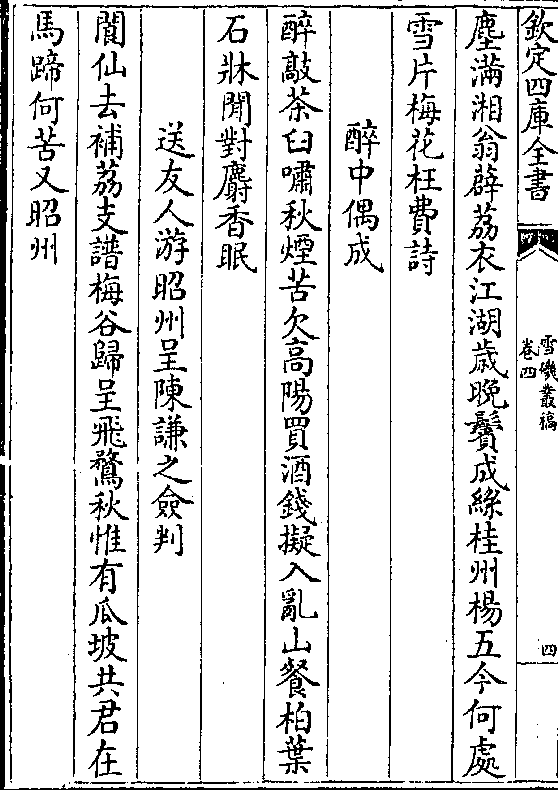 欽定四庫全書
雪磯叢稿
卷四
四
塵滿湘翁薜荔衣江湖歲晚鬢成絲桂州楊五今何處
雪片梅花枉費詩
醉中偶成
醉敲茶臼嘯秋煙苦欠高陽買酒錢擬入亂山餐柏葉
石牀閒對麝香眠
送友人游昭州呈陳謙之僉判
閬仙去補荔支譜梅谷歸呈飛鶩秋惟有瓜坡共君在
馬蹄何苦又昭州